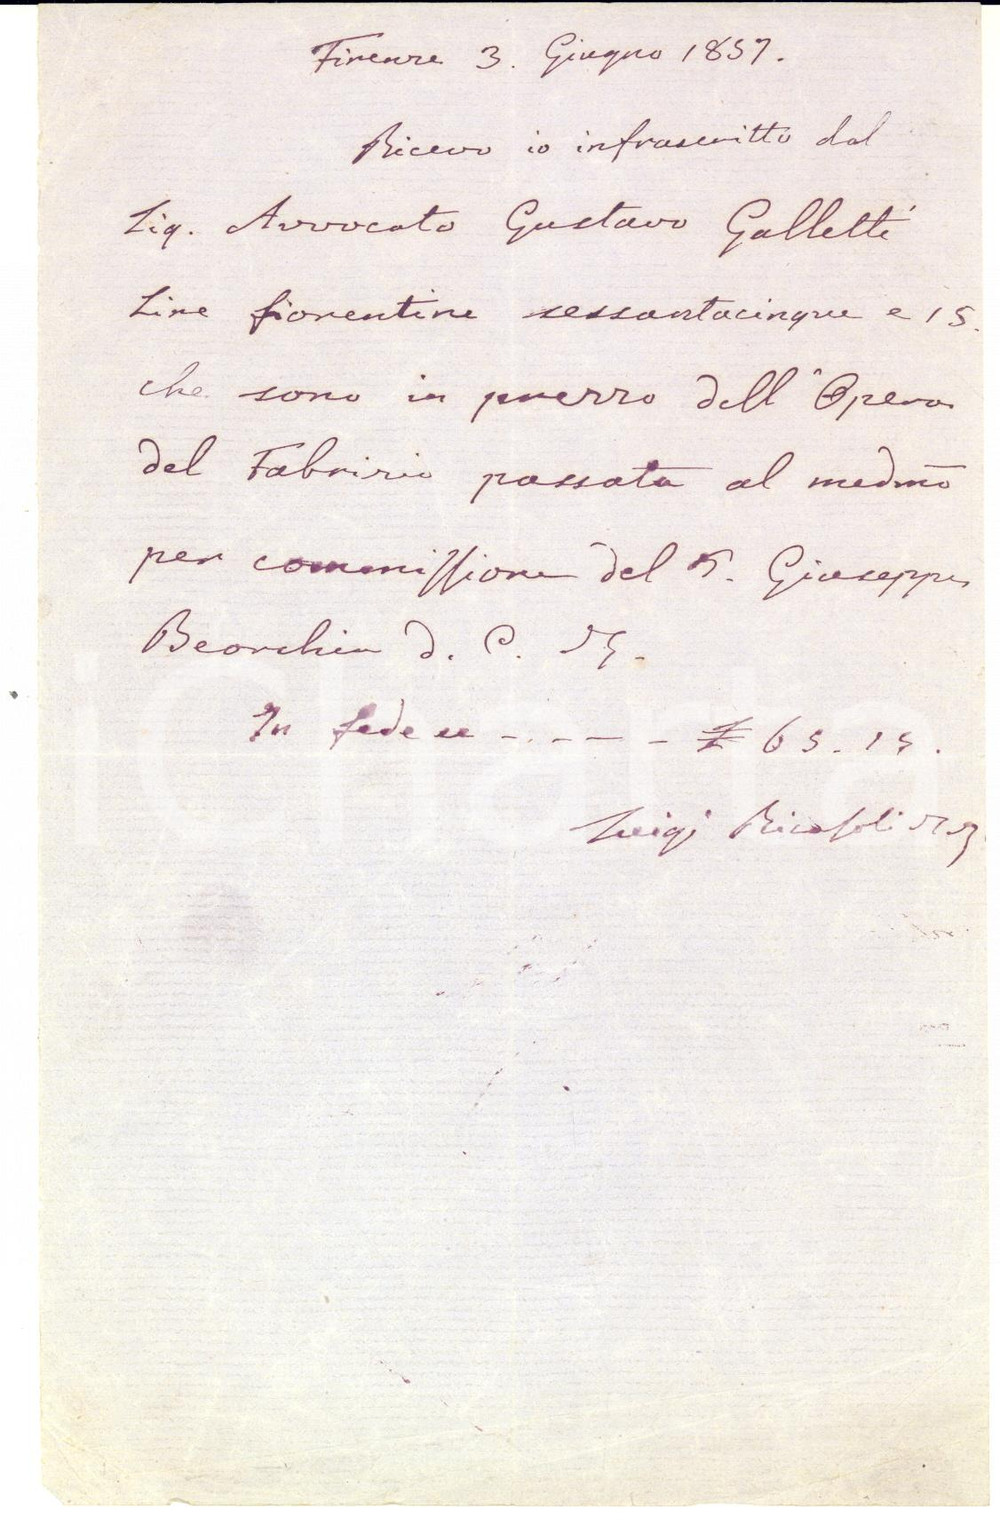 Firenze 3. Giugno 1857.
Ricevo io infrascritto dal
Sig. Avvocato Gustavo Galletti
Lire fiorentine sessantacinque e 15.
che sono in prezzo dell'Opera
del Fabrizio passata al medmo
per commissione del P. Giuseppe
Beorchia d. C. d. G.
In fede ec - . - — - £ 65. 15.
Luigi Ricasoli
iCharta